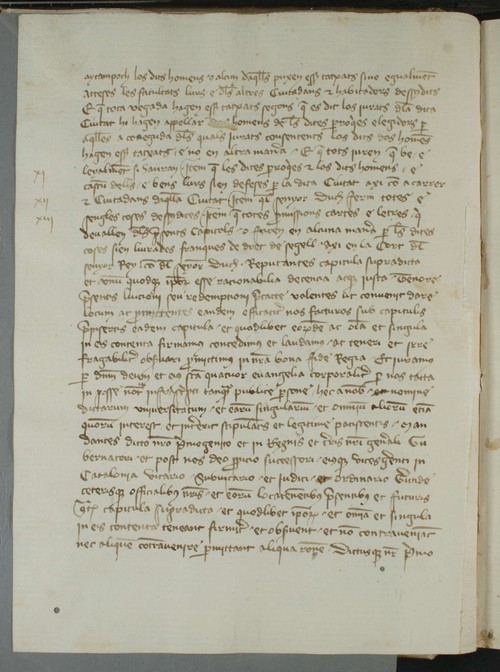 aytanpoch los dits homens o alcun daquells puxen esser tatxats sino egualment
ateses les facultats lurs e dels altres Ciutadans & habitadors desusdits
E que tota vegada hagen esser tatxats segons que es dit los jurats de la dita
Ciutat hi hagen appellar homens de les dites parroquies elegidors per
aquelles a coneguda dels quals jurats consentents los dits dos homens
hagen esser tatxats e no en altra manera E que tots juren que be e
lealment si hauran Item que les dites parroquies & los dits homens e
XI
casun dells e bens lurs sien defeses per la dita Ciutat axi co a carrer
XII
& Ciutadans daquella Ciutat Item que l senyor Duch ferm totes e
XIII
sengles coses desusdites Item que totes messions cartes e letres que
devallen dels presents Capitols o facen en alcuna manera per les dites
coses sien liurades franques de dret de segell Axi en la Cort del
senyor Rey co del senyor Duch Reputantes capitula supradicta
et unum quodque ipsorum esse racionabilia decencia atque justa Tenore
presentis luicioni seu redempcioni predicte volentes ut convenit dare
locum ac eandem efficaciter nos facturos sub capitulis
preinsertis eadem capitula et quodlibet eorumdem ac omnia et singula
in eis contenta firmamus concedimus et laudamus ac teneri et irre
fragabiliter observari promittimus in nostra bona fide Regia Et juramo
per dominum deum et eius sancta quatuor evangelia corporaliter per nos tacta
in posse notarii infrascripti tanquam publice persone hec a nobis et nomine
dictarum universitatum et earum singularium et omnium aliorum etiam
quorum interest et intererit stipulantis et legitime paciscentis Man
dantes dicto nostro primogenito et in Regnis et terris nostris generali Gu
bernatori et post nos deo propicio successori eiusque vices gerenti in
Catalonia vicario Subvicario et judici et ordinario Gerunde
ceterisque officialibus nostris et eorum locatenentibus presentibus et futuris
Quatenus capitula supradicta et quodlibet ipsorum et omnia et singula
in eis contenta teneant firmiter et observent et non contraveniant
nec aliquem contravenire permittant aliqua racione Dictusque noster primo